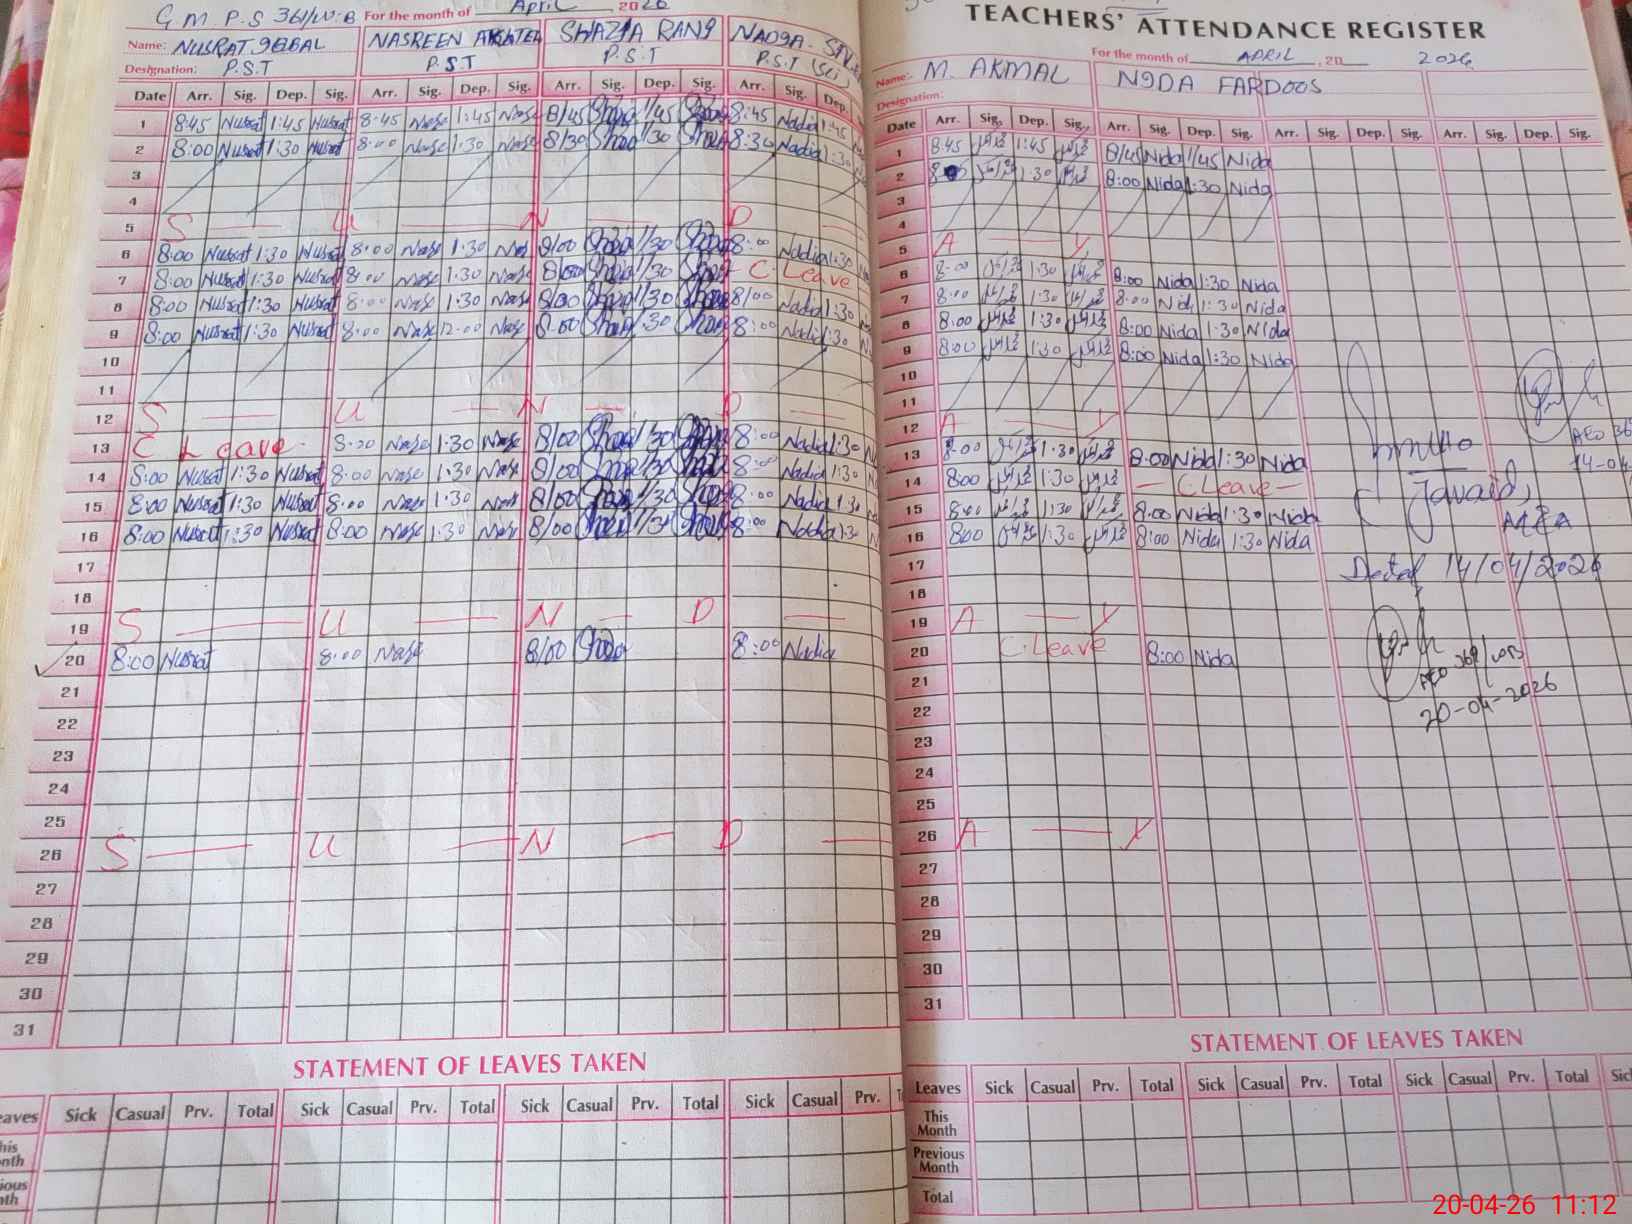 G.M.P.S 361/W.B For the month of April 2026
Name: NUSRAT IQBAL NASREEN AKHTER SHAZIA RANI NADIA
Designation: P.S.T P.S.T P.S.T P.S.T (Sci)
Date Arr. Sig. Dep. Sig. Arr. Sig. Dep. Sig. Arr. Sig. Dep. Sig. Arr. Sig. Dep.
1 8:45 Nusrat 1:45 Nusrat 8:45 Nase 1:45 Nase 8/45 Shazia 1/45 Shazia 8:45 Nadia 1:45
2 8:00 Nusrat 1:30 Nusrat 8:00 Nase 1:30 Nase 8/30 Shazia 1/30 Shazia 8:30 Nadia 1:30
3
4
5 S U N D
6 8:00 Nusrat 1:30 Nusrat 8:00 Nase 1:30 Nase 8/00 Shazia 1/30 Shazia 8:00 Nadia 1:30
7 8:00 Nusrat 1:30 Nusrat 8:00 Nase 1:30 Nase 8/00 Shazia 1/30 Shazia - C. Leave
8 8:00 Nusrat 1:30 Nusrat 8:00 Nase 1:30 Nase 8/00 Shazia 1/30 Shazia 8/00 Nadia 1:30
9 8:00 Nusrat 1:30 Nusrat 8:00 Nase 12:00 Nase 8:00 Shazia 1/30 Shazia 8:00 Nadia 1:30
10
11
12 S U N D
13 C Leave 8:00 Nase 1:30 Nase 8/00 Shazia 1/30 Shazia 8:00 Nadia 1:30
14 8:00 Nusrat 1:30 Nusrat 8:00 Nase 1:30 Nase 8/00 Shazia 1/30 Shazia 8:00 Nadia 1:30
15 8:00 Nusrat 1:30 Nusrat 8:00 Nase 1:30 Nase 8/00 Shazia 1/30 Shazia 8:00 Nadia 1:30
16 8:00 Nusrat 1:30 Nusrat 8:00 Nase 1:30 Nase 8/00 Shazia 1/30 Shazia 8:00 Nadia 1:30
17
18
19 S U N D
20 8:00 Nusrat 8:00 Nase 8/00 Shazia 8:00 Nadia
21
22
23
24
25
26 S U N D
27
28
29
30
31
STATEMENT OF LEAVES TAKEN
Leaves Sick Casual Prv. Total Sick Casual Prv. Total Sick Casual Prv. Total Sick Casual Prv.
TEACHERS' ATTENDANCE REGISTER
For the month of APRIL, 20 2026
Name: M. AKMAL NIDA FARDOOS
Designation:
Date Arr. Sig. Dep. Sig. Arr. Sig. Dep. Sig. Arr. Sig. Dep. Sig. Arr. Sig. Dep. Sig.
1 8:45 1:45 8/45 Nida 1/45 Nida
2 1:30 8:00 Nida 1:30 Nida
3
4
5 A Y
6 8:00 1:30 8:00 Nida 1:30 Nida
7 8:00 1:30 8:00 Nida 1:30 Nida
8 8:00 1:30 8:00 Nida 1:30 Nida
9 8:00 1:30 8:00 Nida 1:30 Nida
10
11
12 A Y
13 8:00 1:30 8:00 Nida 1:30 Nida
14 8:00 1:30 - C Leave -
15 8:00 1:30 8:00 Nida 1:30 Nida
16 8:00 1:30 8:00 Nida 1:30 Nida
17
18
19 A Y
20 C. Leave 8:00 Nida
21
22
23
24
25
26 A Y
27
28
29
30
31
Javaid,
Dated 14/04/2026
AEO
20-04-2026
STATEMENT OF LEAVES TAKEN
Leaves Sick Casual Prv. Total Sick Casual Prv. Total Sick Casual Prv. Total
This Month
Previous Month
Total
20-04-26 11:12